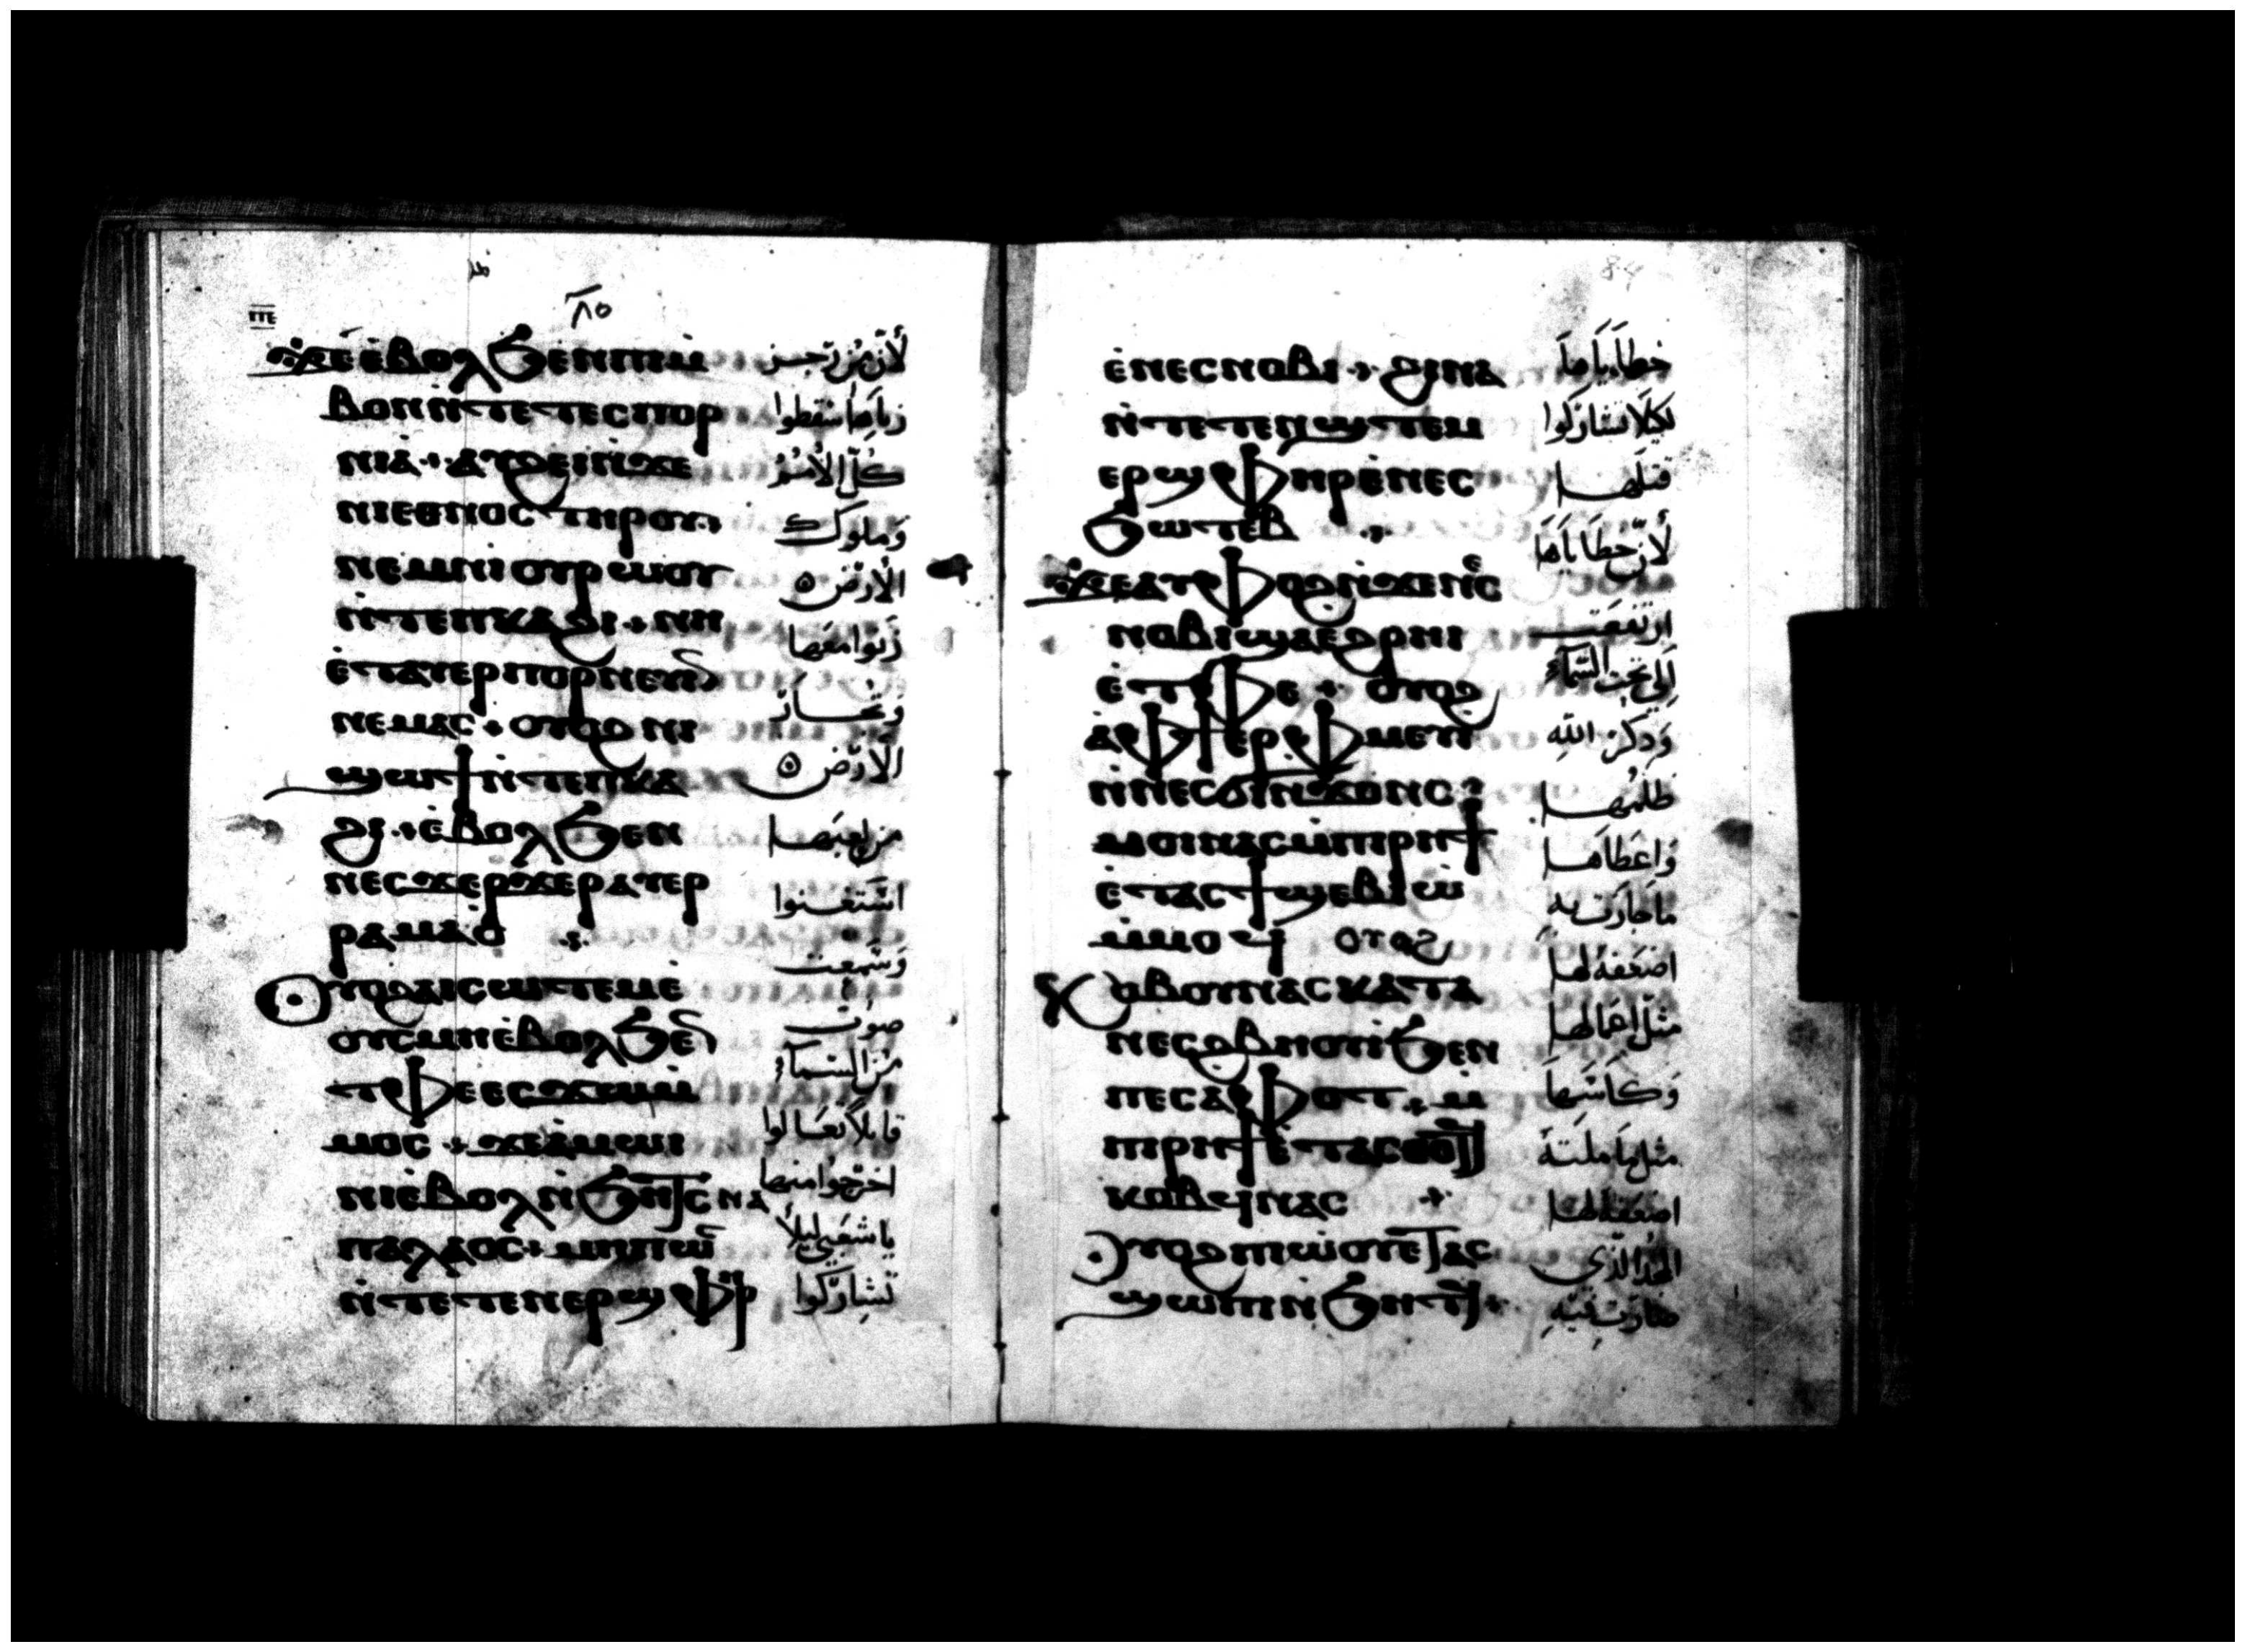 ⲡⲉ
٨٥
ϫⲉ ⲉ̀ⲃⲟⲗϧⲉⲛⲡⲓⲙ̀
ⲃⲟⲛ ⲛ̀ⲧⲉⲧⲉⲥⲡⲟⲣ
ⲛⲓⲁ̀ ⲁⲩϩⲉⲓⲛ̀ϫⲉ
ⲛⲓⲉⲑⲛⲟⲥ ⲧⲏⲣⲟⲩ
ⲛⲉⲙⲛⲓⲟⲩⲣⲱⲟⲩ
ⲛ̀ⲧⲉⲡⲕⲁϩⲓ ⲛⲏ
ⲉ̀ⲧⲁⲩⲉⲣⲡⲟⲣⲛⲉⲩⲓⲛ
ⲛⲉⲙⲁⲥ ⲟⲩⲟϩ ⲛⲓ
ϣⲱϯ ⲛ̀ⲧⲉⲡⲕⲁ
ϩⲓ ⲉ̀ⲃⲟⲗϧⲉⲛ
ⲛⲉⲥϫⲉⲣϫⲉⲣ ⲁⲩⲉⲣ
ⲣⲁⲙⲁⲟ̀
ⲟⲩⲟϩ ⲁⲓⲥⲱⲧⲉⲙⲉ̀
ⲟⲩⲥⲙⲏ ⲉ̀ⲃⲟⲗϧⲉⲛ
ⲧⲫⲉ ⲉⲥϫⲱⲙ̀
ⲙⲟⲥ ϫⲉ ⲁ̀ⲙⲱⲓ
ⲛⲓ ⲉ̀ⲃⲟⲗ ⲛ̀ϧⲏⲧⲥ ⲡⲁ
ⲗⲁⲟⲥ
ⲛ̀ⲧⲉⲧⲉⲛⲉⲣϣⲫⲏⲣ
لأن من رجز
زناها سقطوا
كل الأمم
وملوك
الأرض
زنوا معها
وتجار
الأرض
من لعبها
استغنوا
وسمعت
صوت
من السماء
قايلا تعالوا
اخرجوا منها
يا شعبي ليلا
تشاركوا
84
ⲉ̀ⲛⲉⲥⲛⲟⲃⲓ ϩⲓⲛⲁ
ⲛ̀ⲧⲉⲧⲉⲛϣⲧⲉⲙ
ⲉⲣϣⲫⲏⲣ ⲉ̀ⲛⲉⲥ
ϧⲱⲧⲉⲃ
ϫⲉ ⲁⲩⲫⲟϩ ⲛ̀ϫⲉⲛⲉⲥ
ⲛⲟⲃⲓ ϣⲁⲉϩⲣⲏⲓ
ⲉ̀ⲧⲫⲉ ⲟⲩⲟϩ
ⲁ̀ⲫϯ ⲉⲣⲫⲙⲉⲩⲓ
ⲛ̀ⲛⲉⲥϭⲓⲛϫⲟⲛⲥ
ⲙⲟⲓⲛⲁⲥ ⲙ̀ⲡⲣⲏϯ
ⲉ̀ⲧⲁⲥϯϣⲉⲃⲓⲱ̀
ⲙ̀ⲙⲟϥ ⲟⲩⲟϩ
ⲕⲟⲃⲟⲩⲛⲁⲥ ⲕⲁⲧⲁ
ⲛⲉⲥϩⲃⲏⲟⲩⲓ̀ ϧⲉⲛ
ⲡⲉⲥⲁ̀ⲫⲟⲧ ⲙ̀
ⲡⲣⲏϯ ⲉ̀ⲧⲁⲥ
ⲕⲟⲃⲉϥⲛⲁⲥ
ⲟⲩⲟϩ ⲡⲱ̀ⲟⲩ ⲉ̀ⲧⲁⲥ
ϣⲱⲡⲓ ⲛ̀ϧⲏⲧϥ
خطاياها
لكيلا تشاركوا
قتلها
لأن خطاياها
ارتفعت
إلى تحت السماء
وذكر الله
ظلمها
واعطاها
ما جازت به
اضعفه لها
مثل اعمالها
وكاسها
مثل ما ملته
اضعفه لها
المجد الذي
صارت فيه